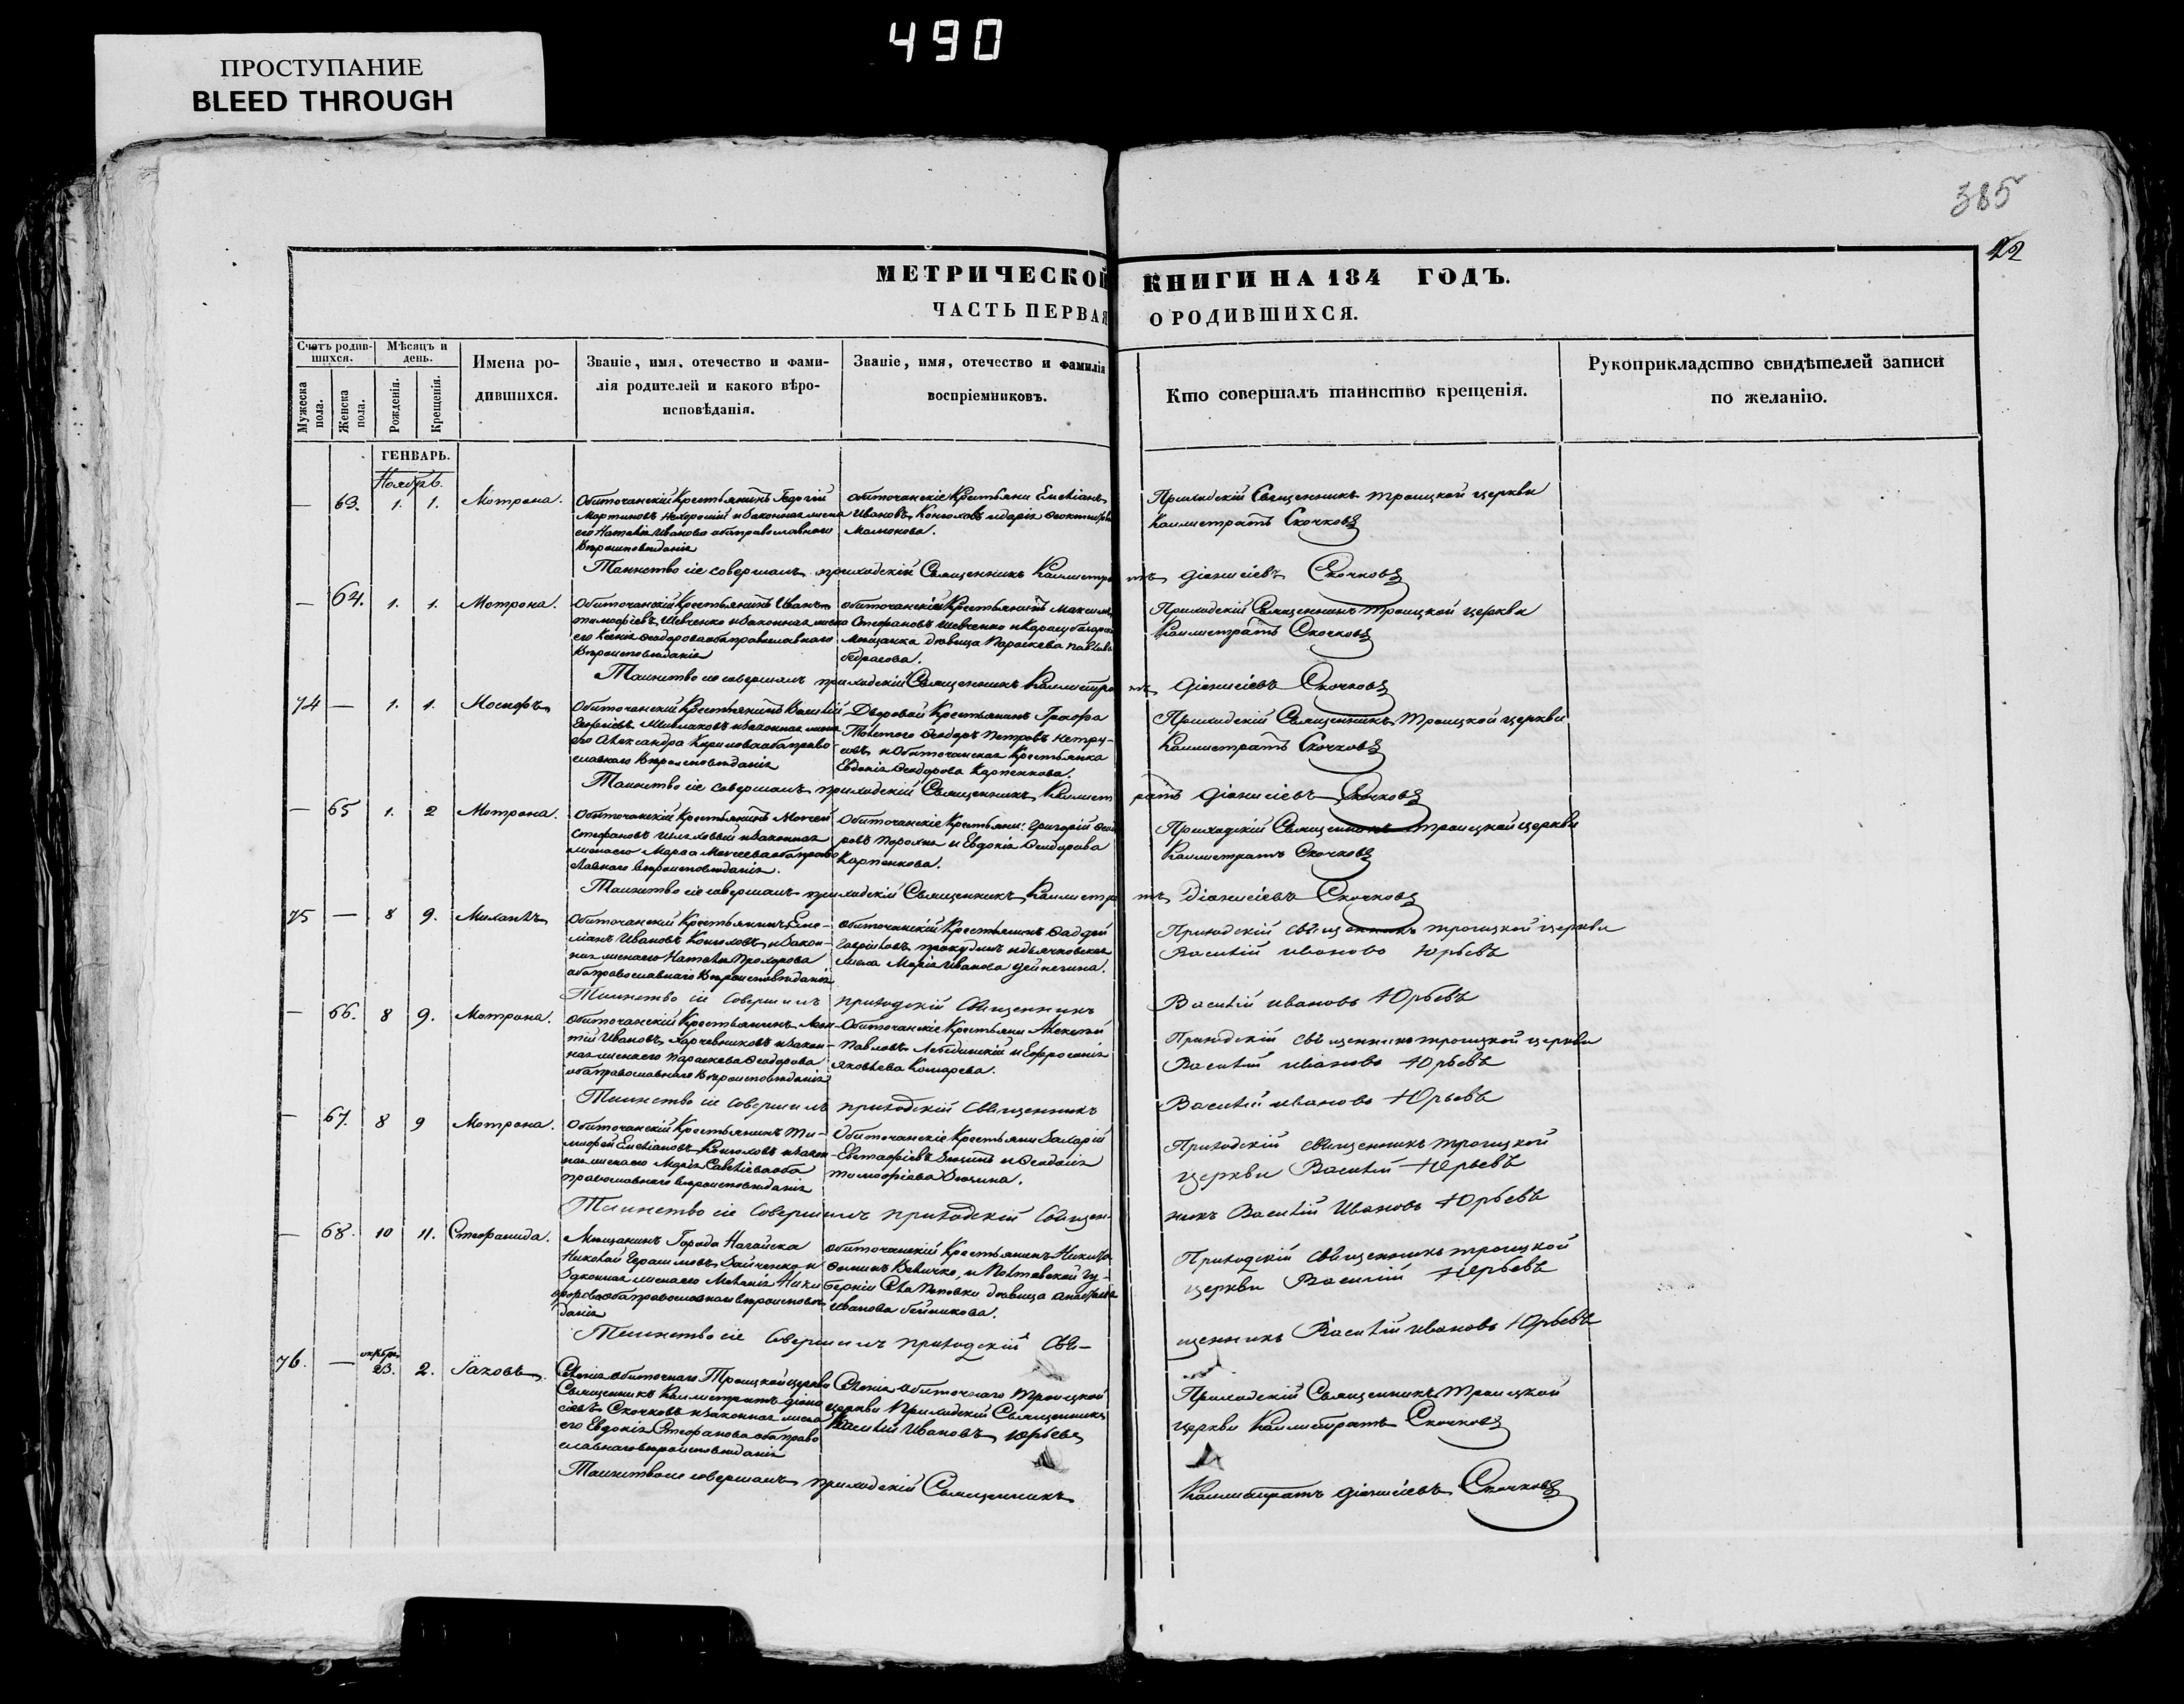 490
ПРОСТУПАНИЕ
BLEED THROUGH
385
22
МЕТРИЧЕСКОЙ КНИГИ НА 184 ГОДЪ.
ЧАСТЬ ПЕРВАЯ О РОДИВШИХСЯ.
Счетъ родив-
шихся.
Мужеска пола.
Женска пола.
Мѣсяцъ и
день.
Рожденія.
Крещенія.
Имена ро-
дившихся.
Званіе, имя, отечество и фами-
лія родителей и какого вѣро-
исповѣданія.
Званіе, имя, отечество и фамилія
воспріемниковъ.
Кто совершалъ таинство крещенія.
Рукоприкладство свидѣтелей записи
по желанію.
ГЕНВАРЬ.
Ноябрь.
— 63. 1. 1. Мотрона.
Обиточанскій Крестьянинъ Георгій
Мартиновъ Нехорошій и законная жена
его Наталія Иванова оба православнаго
Вѣроисповѣданія
Обиточанскіе Крестьяни Емелианъ
Ивановъ Конюховъ и Дарія
Мамонова.
Приходскій Священникъ Троицкой церкви
Каллистратъ Скочковъ
Таинство сіе совершалъ приходскій Священникъ Каллистратъ Діонисіевъ Скочковъ
— 64. 1. 1. Мотрона.
Обиточанскій Крестьянинъ Иванъ
Тимофіевъ Шевченко и законная жена
его Ксенія Феодорова оба православнаго
Вѣроисповѣданія
Обиточанскій Крестьянинъ Максимъ
Стефановъ Шевченко и
Мещанка дѣвица Параскева
Приходскій Священникъ Троицкой церкви
Каллистратъ Скочковъ
Таинство сіе совершалъ приходскій Священникъ Каллистратъ Діонисіевъ Скочковъ
74 — 1. 1. Иосифъ
Обиточанскій Крестьянинъ Василій
и законная жена
его Александра Карпова оба право-
славнаго Вѣроисповѣданія
Дворовой Крестьянинъ Графа
Толстого Феодоръ Петровъ
и Обиточанская Крестьянка
Евдокія Феодорова Карпенкова.
Приходскій Священникъ Троицкой церкви
Каллистратъ Скочковъ
Таинство сіе совершалъ приходскій Священникъ Каллистратъ Діонисіевъ Скочковъ
— 65 1. 2 Мотрона.
Обиточанскій Крестьянинъ Моисей
Стефановъ и законная
жена его Марфа Моисеева оба право-
славнаго вѣроисповѣданія.
Обиточанскіе Крестьяни: Григорій Феодо-
ровъ и Евдокія Феодорова
Карпенкова.
Приходскій Священникъ Троицкой церкви
Каллистратъ Скочковъ
Таинство сіе совершалъ приходскій Священникъ Каллистратъ Діонисіевъ Скочковъ
75 — 8 9. Михаилъ
Обиточанскій Крестьянинъ Еме-
лианъ Ивановъ Конюховъ и закон-
ная жена его Наталія Прохорова
оба православнаго Вѣроисповѣданія
Обиточанскій Крестьянинъ Фаддей
Гавриловъ и
жена Марія Иванова
Приходскій священникъ троицкой церкви
Василій Ивановъ Юрьевъ
Таинство сіе совершилъ приходскій священникъ Василій Ивановъ Юрьевъ
— 66. 8 9. Мотрона.
Обиточанскій Крестьянинъ
Ивановъ Харчевниковъ и закон-
ная жена его Параскева Феодорова
оба православнаго Вѣроисповѣданія
Обиточанскіе Крестьяни Алексѣй
Павловъ Лебединскій и Ефросинія
Яковлева Комарева.
Приходскій священникъ троицкой церкви
Василій Ивановъ Юрьевъ
Таинство сіе совершилъ приходскій священникъ Василій Ивановъ Юрьевъ
— 67. 8 9 Мотрона.
Обиточанскій Крестьянинъ Ти-
мофей Емелиановъ Конюховъ и закон-
ная жена его Марія Савелиева оба
православнаго вѣроисповѣданія
Обиточанскіе Крестьяни Захарій
Евстафіевъ Зюзинъ и Феодосія
Тимофіева Зюзина.
Приходскій священникъ троицкой
церкви Василій Юрьевъ
Таинство сіе совершилъ приходскій священ-
никъ Василій Ивановъ Юрьевъ
— 68. 10 11. Стефанида.
Мещанинъ Города Нагайска
Николай Герасимовъ Зайченко и
Законная жена его Меланія Ники-
форова оба православнаго вѣроисповѣ-
данія
Обиточанскій Крестьянинъ Никита
Величко, и Полтавской Гу-
берніи Села Поповки дѣвица Анастасія
Иванова
Приходскій священникъ троицкой
церкви Василій Юрьевъ
Таинство сіе совершилъ приходскій свя-
щенникъ Василій Ивановъ Юрьевъ
76. — октября 23. 2. Іаковъ
Селенія Обиточнаго Троицкой церкви
Священникъ Каллистратъ Діони-
сіевъ Скочковъ и законная жена
его Евдокія Стефанова оба право-
славнаго вѣроисповѣданія
Селенія Обиточнаго Троицкой
церкви Приходскій Священникъ
Василій Ивановъ Юрьевъ
Приходскій Священникъ Троицкой
церкви Каллистратъ Скочковъ
Таинство сіе совершалъ приходскій Священникъ
Каллистратъ Діонисіевъ Скочковъ